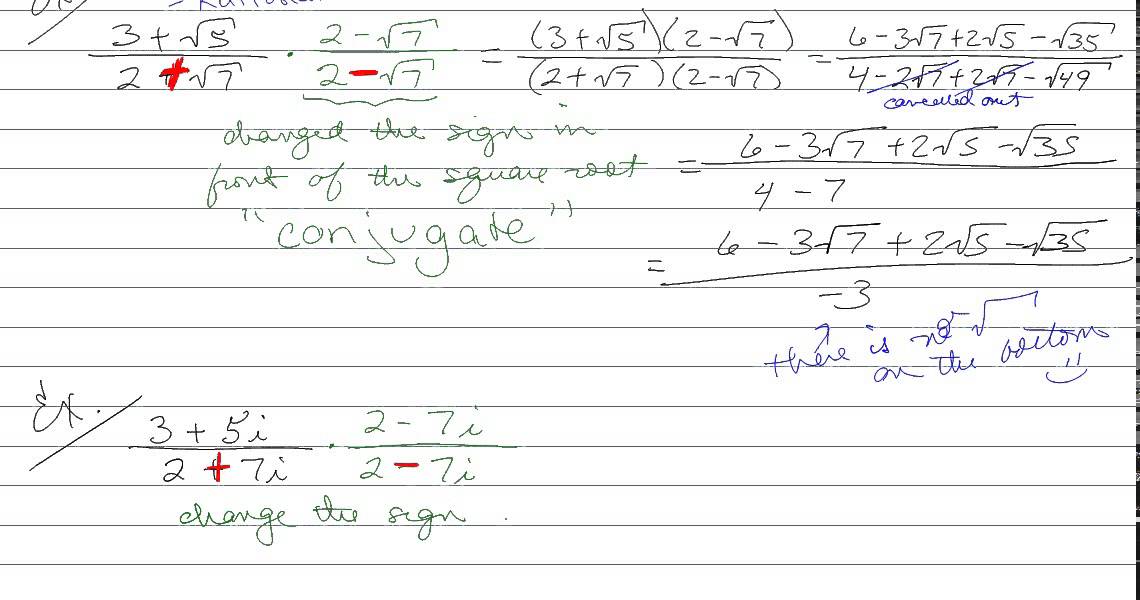 (3 + √5)/(2 + √7) · (2 - √7)/(2 - √7) = ((3 + √5)(2 - √7))/((2 + √7)(2 - √7)) = (6 - 3√7 + 2√5 - √35)/(4 - 2√7 + 2√7 - √49)
cancelled out
changed the sign in
front of the square root
"conjugate"
= (6 - 3√7 + 2√5 - √35)/(4 - 7)
= (6 - 3√7 + 2√5 - √35)/(-3)
there is no √
on the bottom
Ex.
(3 + 5i)/(2 + 7i) · (2 - 7i)/(2 - 7i)
change the sign.